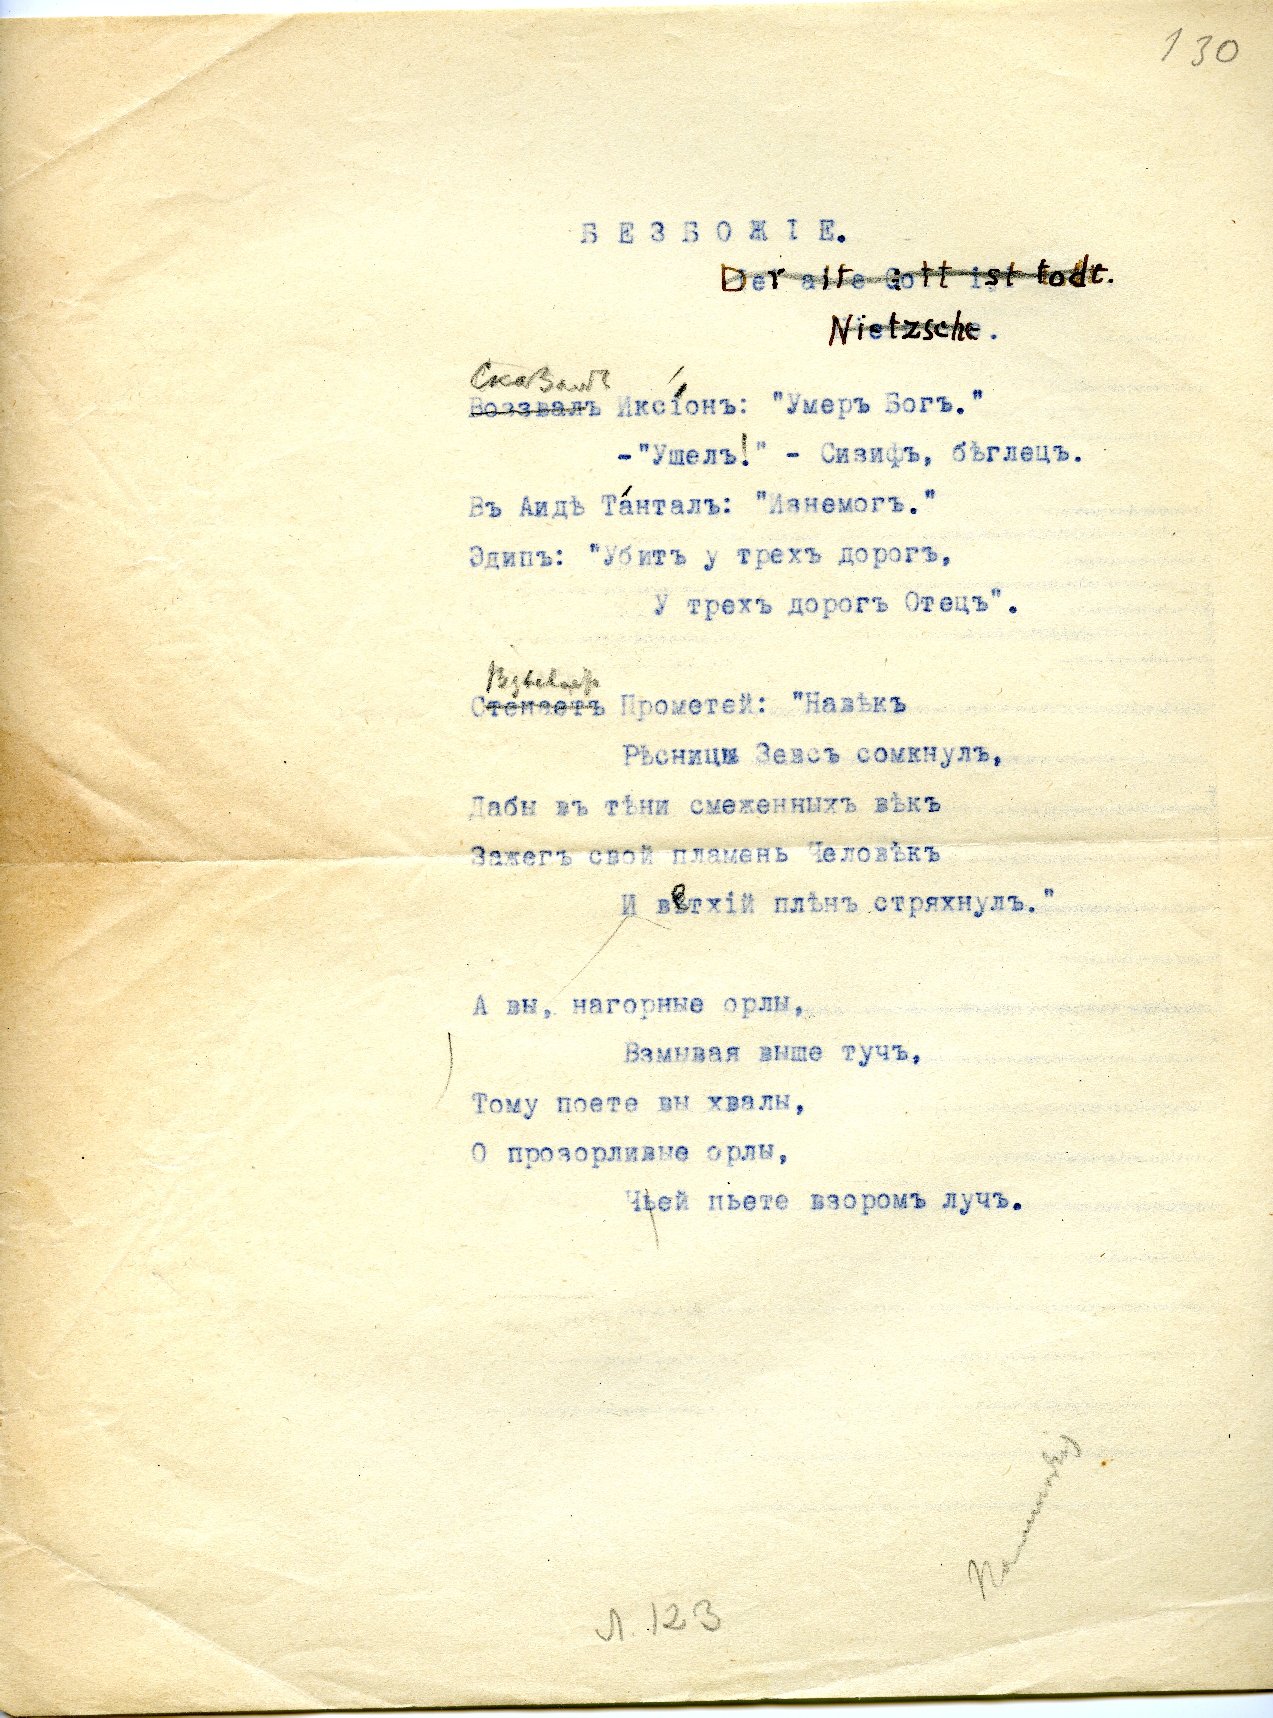 130
БЕЗБОЖІЕ.
Der alte Gott ist todt.
Nietzsche.
Сказалъ
Воззвалъ Иксіонъ: "Умеръ Богъ."
-"Ушелъ!" - Сизифъ, бѣглецъ.
Въ Аидѣ Та́нталъ: "Изнемогъ."
Эдипъ: "Убитъ у трехъ дорогъ,
У трехъ дорогъ Отецъ".
Стенаетъ Прометей: "Навѣкъ
Рѣсницы Зевсъ сомкнулъ,
Дабы въ тѣни смеженныхъ вѣкъ
Зажегъ свой пламень Человѣкъ
И ветхій плѣнъ стряхнулъ."
А вы, нагорные орлы,
Взмывая выше тучъ,
Тому поете вы хвалы,
О прозорливые орлы,
Чьей пьете взоромъ лучъ.
Л. 123